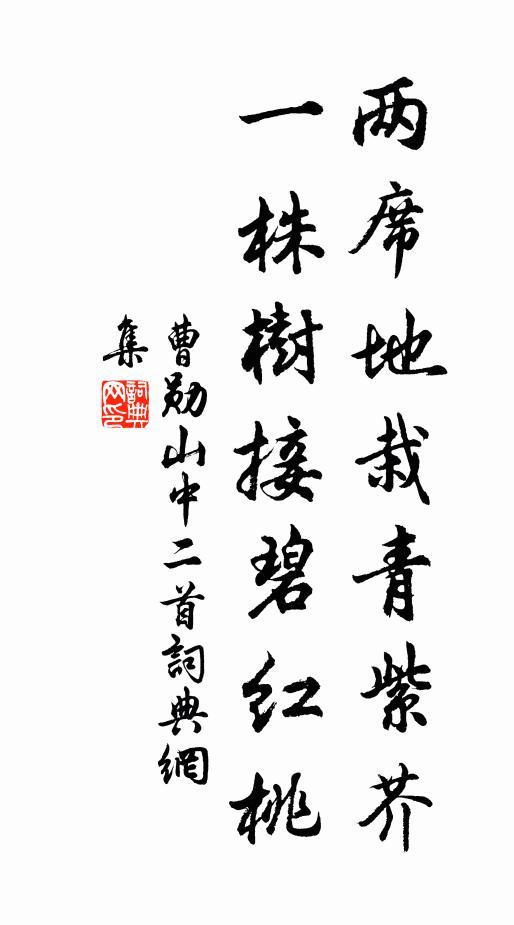 两席地栽青紫芥
一株樹接碧红桃
曹勛山中二首詞典網
集
詞典
网印